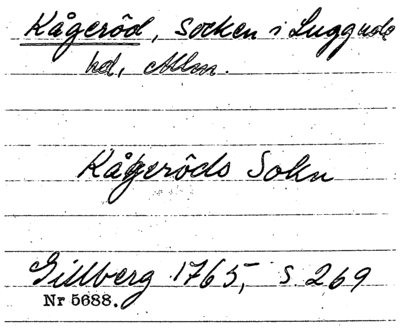 Kågeröd, socken i Luggude
hd, Mlm.
Kågeröds Sokn
Gillberg 1765, s. 269
Nr 5688.